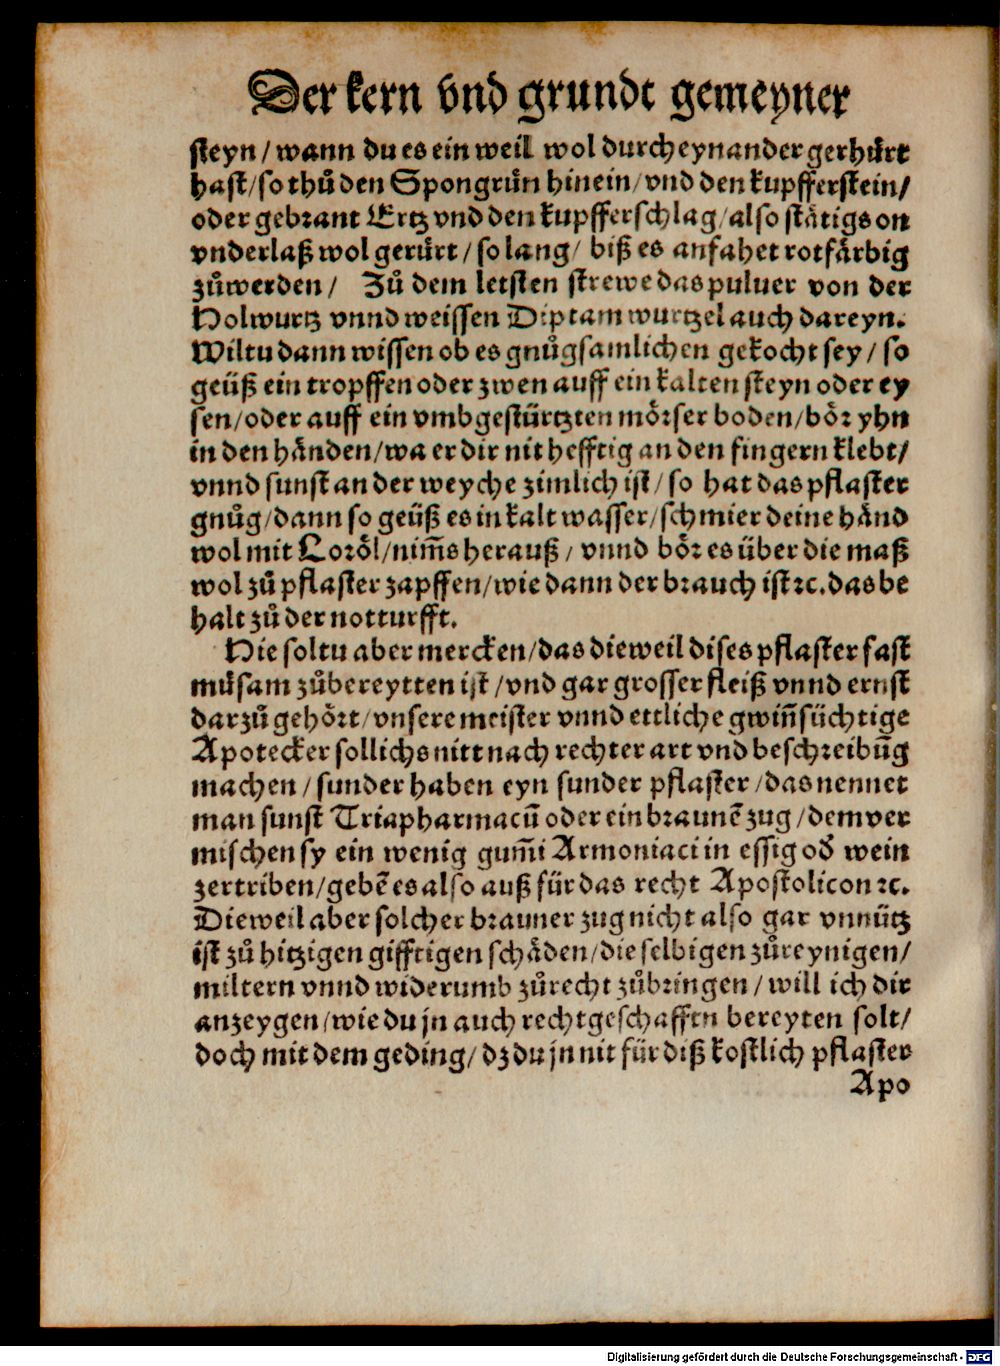 Der kern vnd grundt gemeyner
steyn / wann du es ein weil wol durch eynander gerhuͤrt
hast / so thuͦ den Spongruͤn hinein / vnd den kupfferstein /
oder gebrant Ertz vnd den kupfferschlag / also staͤtigs on
vnderlaß wol geruͤrt / so lang / biß es anfahet rotfaͤrbig
zuͦwerden / Zuͦ dem letsten strewe das puluer von der
Holwurtz vnnd weissen Diptam wurtzel auch dareyn.
Wiltu dann wissen ob es gnuͦgsamlichen gekocht sey / so
geüß ein tropffen oder zwen auff ein kalten steyn oder ey
sen / oder auff ein vmbgestürtzten moͤrser boden / boͤr yhn
in den haͤnden / wa er dir nit hefftig an den fingern klebt /
vnnd sunst an der weyche zimlich ist / so hat das pflaster
gnuͦg / dann so geüß es in kalt wasser / schmier deine haͤnd
wol mit Loroͤl / nim̄s herauß / vnnd boͤr es über die maß
wol zuͦ pflaster zapffen / wie dann der brauch ist ꝛc. das be
halt zuͦ der notturfft.
Hie soltu aber mercken / das dieweil dises pflaster fast
muͤsam zuͦbereytten ist / vnd gar grosser fleiß vnnd ernst
darzuͦ gehoͤrt / vnsere meister vnnd ettliche gwin̄süchtige
Apotecker sollichs nitt nach rechter art vnd beschreibūg
machen / sunder haben eyn sunder pflaster / das nennet
man sunst Triapharmacū oder ein braunē zug / dem ver
mischen sy ein wenig gum̄i Armoniaci in essig od̕ wein
zertriben / gebē es also auß für das recht Apostolicon ꝛc.
Dieweil aber solcher brauner zug nicht also gar vnnütz
ist zuͦ hitzigen gifftigen schaͤden / die selbigen zuͦreynigen /
miltern vnnd widerumb zuͦrecht zuͦbringen / will ich dir
anzeygen / wie du jn auch rechtgeschaffen bereyten solt /
doch mit dem geding / dz du jn nit für diß kostlich pflaster
Apo
Digitalisierung gefördert durch die Deutsche Forschungsgemeinschaft - DFG